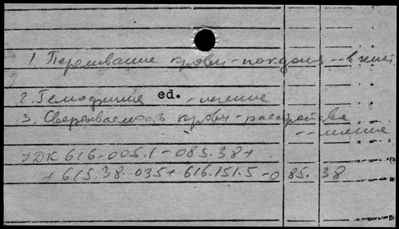 1. Переливание крови - показания - - в хир.
2. Гемофилия ed. - лечение
3. Свертываемость крови - расстройства
- - лечение
УДК 616-005.1-085.38+
+615.38.035+616.151.5-085.38